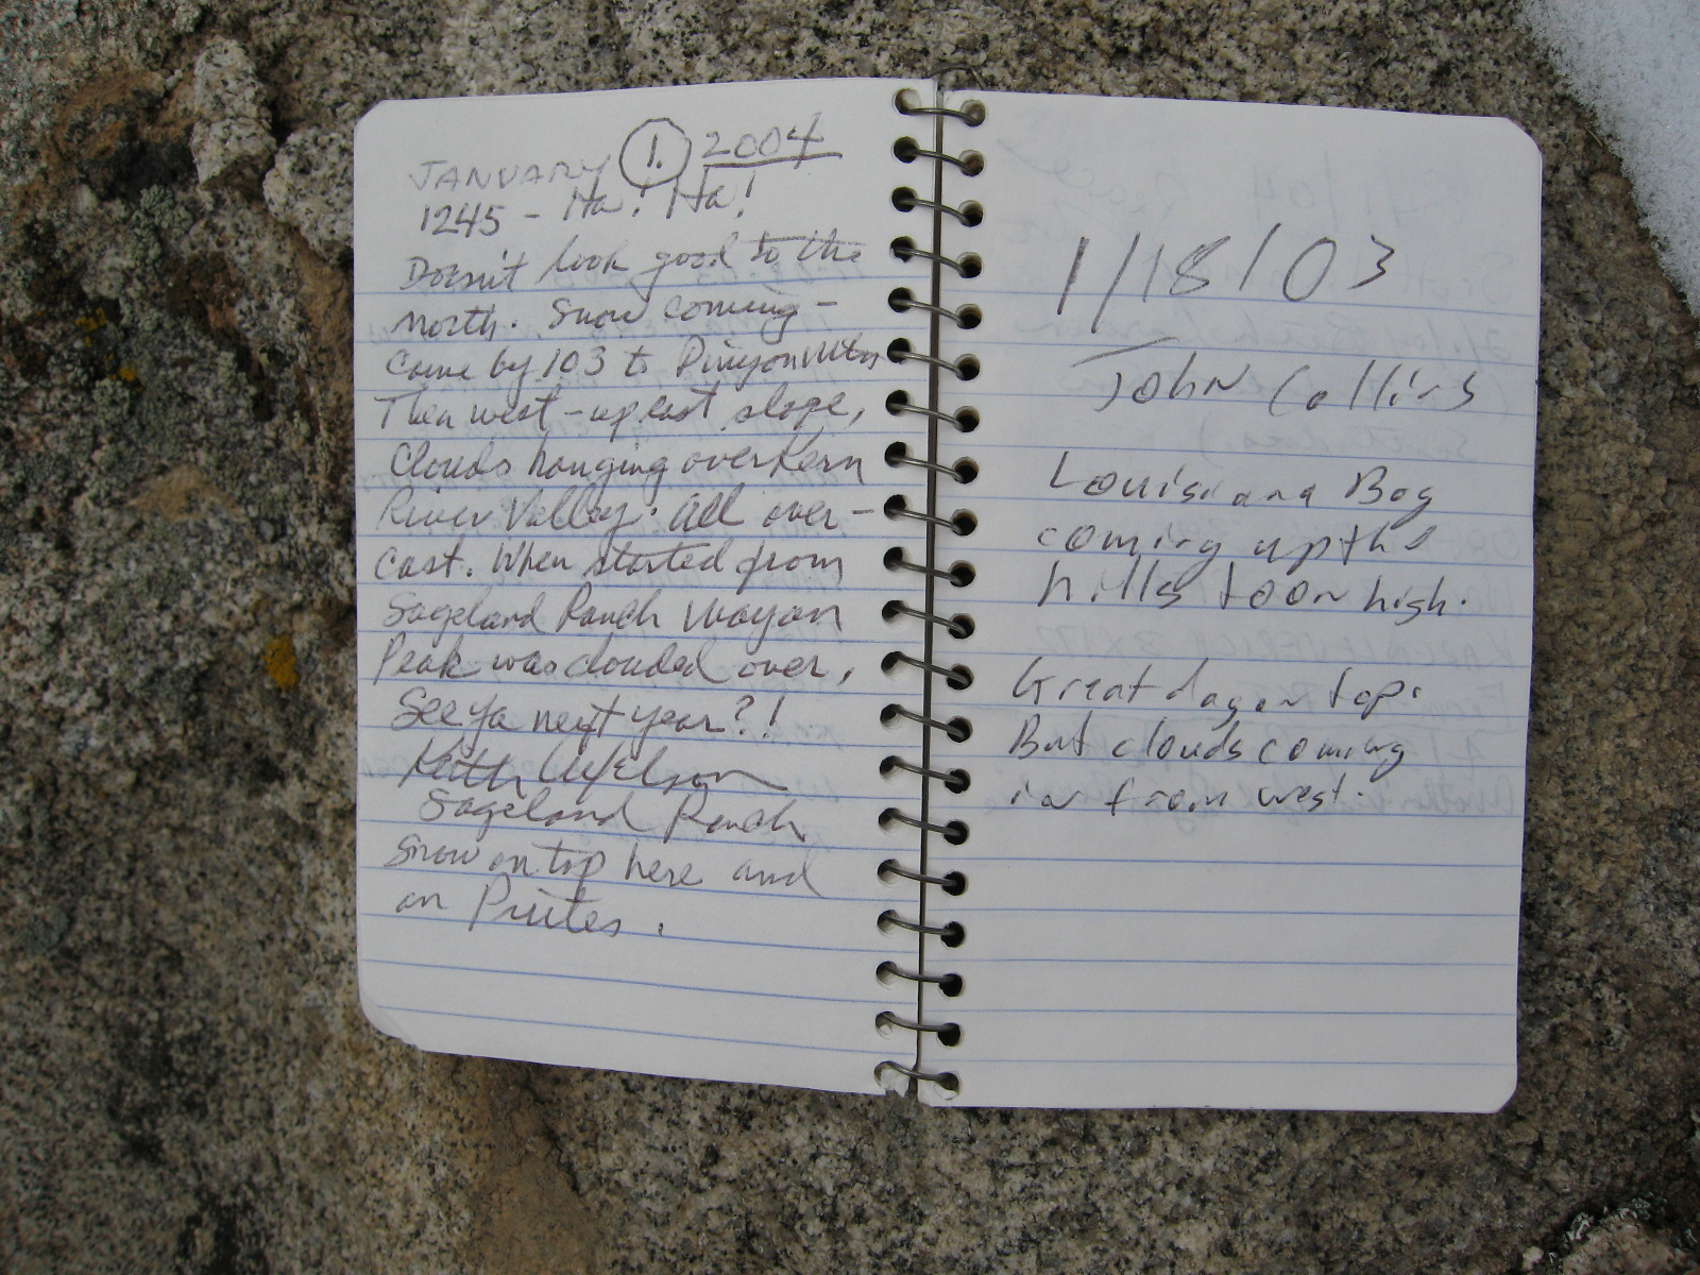 JANUARY 1. 2004
1245 - Ha! Ha!
Doesn't look good to the
north. Snow coming -
Came by 103 to Pinyon Mtn
Then west - up east slope,
Clouds hanging over Kern
River Valley. All over-
cast. When started from
Sageland Ranch Mayan
Peak was clouded over.
See ya next year?!
Keith
Sageland Ranch
Snow on top here and
on Piutes.
1/18/03
John Collins
Louisiana Boy
coming up the
hills to on high.
Great day on top.
But clouds coming
in from west.